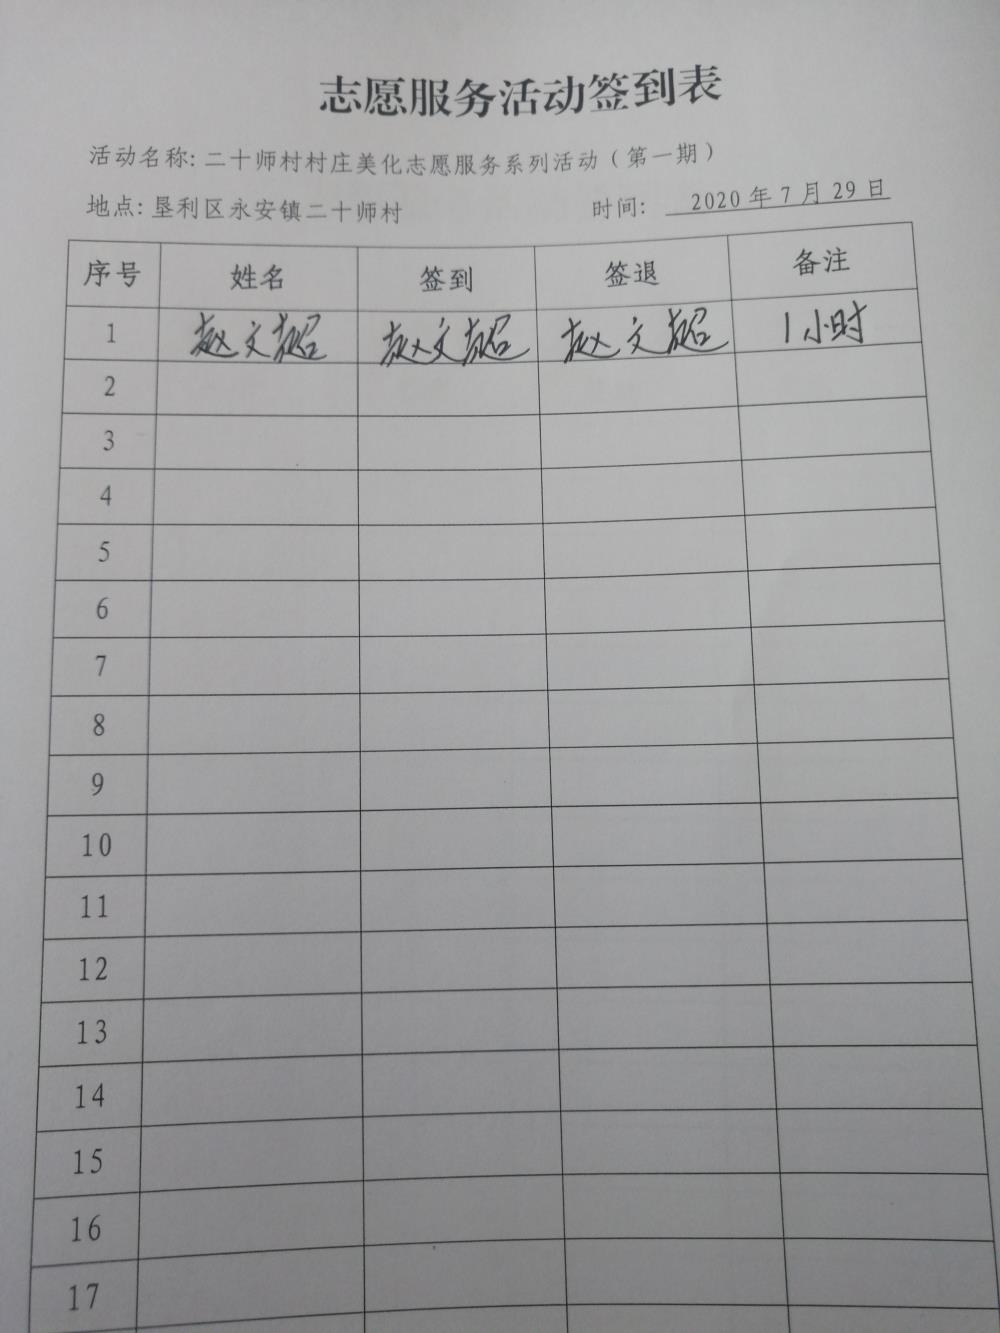 志愿服务活动签到表
活动名称: 二十师村村庄美化志愿服务系列活动（第一期）
地点: 垦利区永安镇二十师村 时间: 2020 年 7 月 29 日
序号 姓名 签到 签退 备注
1 赵文超 赵文超 赵文超 1小时
2
3
4
5
6
7
8
9
10
11
12
13
14
15
16
17